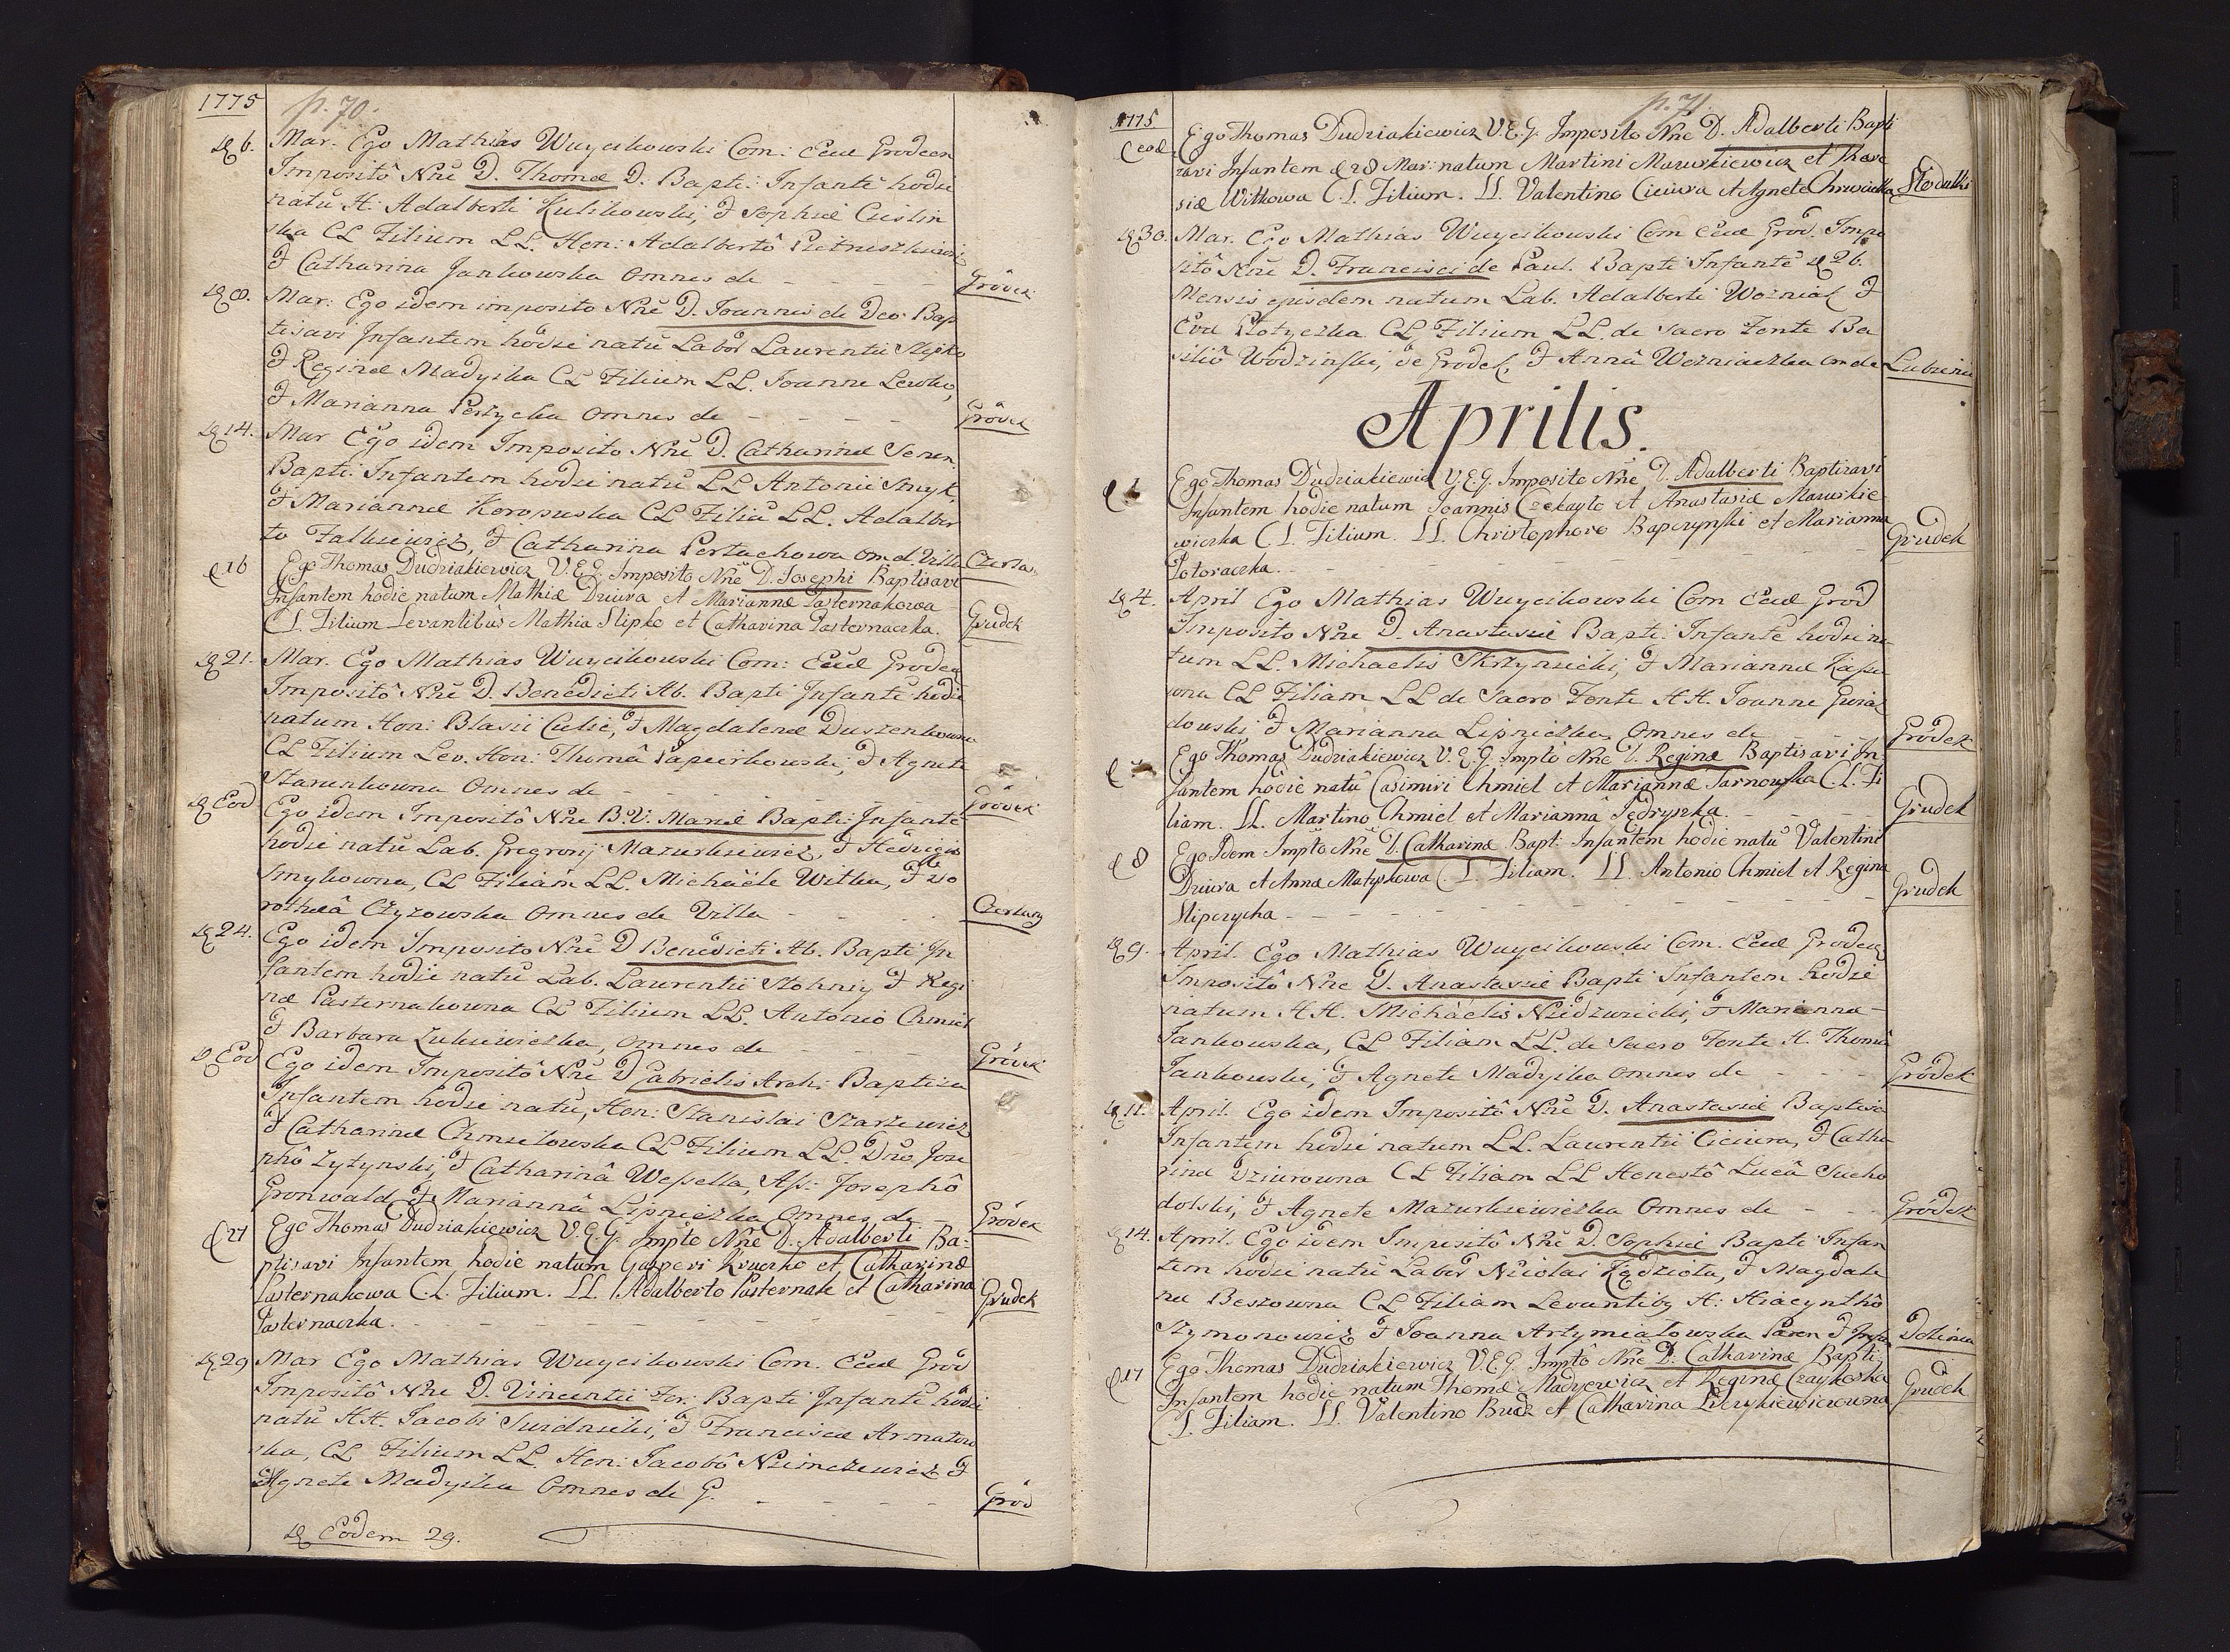 1775
p. 70.
d 6. Mar. Ego Mathias Wuycikowski Com: Eccl Grodecen
Impositô Nñe D. Thomæ D. Bapti: Infantẽ hodie
natũ H: Adalberti Kulikowski, & Sophiæ
ska CL Filium LL. Hon: Adalbertô
& Catharina Jankowska Omnes de - - - - Gródek
d 8. Mar: Ego idem imposito Nñe D. Joannis de Deo Bap
tisavi Infantem hodie natũ Labor Laurentii
& Reginæ Madyska CL Filium LL. Joanne Lewko,
& Marianna Perzycka Omnes de - - - - Gródek
d 14. Mar Ego idem Imposito Nñe D. Catharinæ Senen.
Bapti: Infantem hodie natũ LL Antonii Smyk,
& Mariannæ Koropuska CL Filiã LL. Adalber
to Falkiewicz, & Catharina Pertachowa om d Villa Czerla.
d 16 Ego Thomas Dudziakiewicz V.E.G. Imposito Nñe D. Josephi Baptisavi
Infantem hodie natum Mathiæ Dziura et Mariannæ Pasternakowa
C.L. Filium Levantibus Mathia Slipko et Catharina Pasternaczka. Grudek
d 21. Mar. Ego Mathias Wuycikowski Com: Eccl Grodec
Impositô Nñe D. Benedicti Ab. Bapti Infantẽ hodie
natum Hon: Blasii Culic, & Magdalenæ Duszenkowna
CL Filium Lev. Hon: Thomâ Papierkowski, & Agnete
Starunkowna Omnes de - - - - Gródek
d Eod Ego idem Impositô Nñe B.V. Mariæ Bapti: Infantẽ
hodie natũ Lab. Gregrorij Mazurkiewicz, & Hedvigis
Smykowna, CL Filiam LL. Michaële Witka, & Do
rotheâ Czyzowska Omnes de Villa - - - Czerlany
d 24. Ego idem Imposito Nñe D Benedicti Ab. Bapti In
fantem hodie natũ Lab. Laurentii Stohniy & Regi
næ Pasternakowna CL Filium LL. Antonio Chmiel
& Barbara Zukiewiczka, Omnes de - - - Gródek
d Eod Ego idem Impositô Nñe D Gabrielis Arch: Baptiza
Infantem hodie natũ, Hon: Stanislai Starzewicz
& Catharinæ Chmielowska CL Filium LL. Dño Jose
phô Zytynski, & Catharinâ Wessella, Ass: Josephô
Gronwald, & Mariannâ Lipniczka Omnes de - Gródek
d 27 Ego Thomas Dudziakiewicz V.E.G. Impto Nñe D. Adalberti Ba-
ptisavi Infantem hodie natum Gasperi Kruczko et Catharinæ
Pasternakowa C.L. Filium. LL. Adalberto Pasternak et Catharina Grudek
Pasternaczka. - - - - - - - -
d 29 Mar Ego Mathias Wuycikowski Com. Eccl Grod
Impositô Nñe D. Vincentii Fer: Bapti Infantẽ hodie
natũ HH. Jacobi Swidnicki, & Franciscæ Armatow
ska, CL Filium LL. Hon: Jacobô Niemczewicz &
Agnete Madyska Omnes de G. - - - - Gród
d Eodem 29.
1775
p. 71.
d eod. Ego Thomas Dudziakiewicz V.E.G. Imposito Nñe D. Adalberti Bapti
zavi Infantem d 28 Mar: natum Martini Mazurkiewicz et There
siæ Witkowa C.L. Filium. LL. Valentino Ciciura et Agnete Stodulki
d 30. Mar. Ego Mathias Wuycikowski Com Eccl Grod. Impo
sitô Nñe D. Francisci de Paul. Bapti Infantẽ d 26.
Mensis ejusdem natum Lab. Adalberti Wozniak &
Evæ CL Filium LL. de Sacro Fonte Ba
siliô Wodzinski, de Grodek, & Annâ Wozniaczka om de Lubien
Aprilis.
d 1 Ego Thomas Dudziakiewicz V.E.G. Imposito Nñe D. Adalberti Baptizavi
Infantem hodie natum Joannis Czekayło et Anastasiæ Mazurkie
wiczka C.L. Filium. LL. Christophoro Bapczynski et Marianna Grudek
Potoraczka. - - - - - - -
d 4. April Ego Mathias Wuycikowski Com Eccl Grod
Imposito Nñe D. Anastasiæ Bapti: Infantẽ hodie na
tum LL. Michaelis Skrzynicki, & Mariannæ
ona CL Filiam LL de Sacro Fonte HH. Joanne
dowski, & Marianna Lipniczka, Omnes de - - Gródek
d Ego Thomas Dudziakiewicz V.E.G. Imptô Nñe D. Reginæ Baptisavi In-
fantem hodie natũ Casimiri Chmiel et Mariannæ Tarnowska C.L. Fi
liam. LL. Martino Chmiel et Marianna Jędryszka. - - - Grudek
d 8 Ego Idem Imptô Nñe D. Catharinæ Bapt: Infantem hodie natũ Valentini
Dziura et Annæ Matyskowa C.L. Filiam. LL. Antonio Chmiel et Regina Grudek
Slipczycha - - - - - - - -
d 9. April. Ego Mathias Wuycikowski Com. Eccl Grodec
Impositô Nñe D. Anastasiæ Bapti Infantem hodie
natum HH. Michaëlis Niedzwiecki, & Mariannæ -
Jankowska, CL Filiam LL. de Sacro Fonte H. Thomâ
Jankowski, & Agnete Madyska Omnes de - - - Gródek
d 11. April. Ego idem Impositô Nñe D. Anastasiæ Baptisa
Infantem hodie natum LL. Laurentii Ciciura, & Catha
rinæ Dziurowna CL Filiam LL Honestô Lucâ Sucho
dolski, & Agnete Mazurkiewiczka Omnes de - - Gródek
d 14. April. Ego idem Impositô Nñe D. Sophiæ Bapti Infan
tem hodie natũ Labor Nicolai Kądziota, & Magdale
næ Beszowna CL Filiam Levantibq H: Hiacynthô
Szymonowicz & Joanna Artymiatowska Paren & Infan Dolina
d 17 Ego Thomas Dudziakiewicz V.E.G. Imptô Nñe D. Catharinæ Bapti-
Infantem hodie natum Thomæ Madyewicz et Reginæ Czaykoska Grudek
C.L. Filiam. LL. Valentino Brudz et Catharina